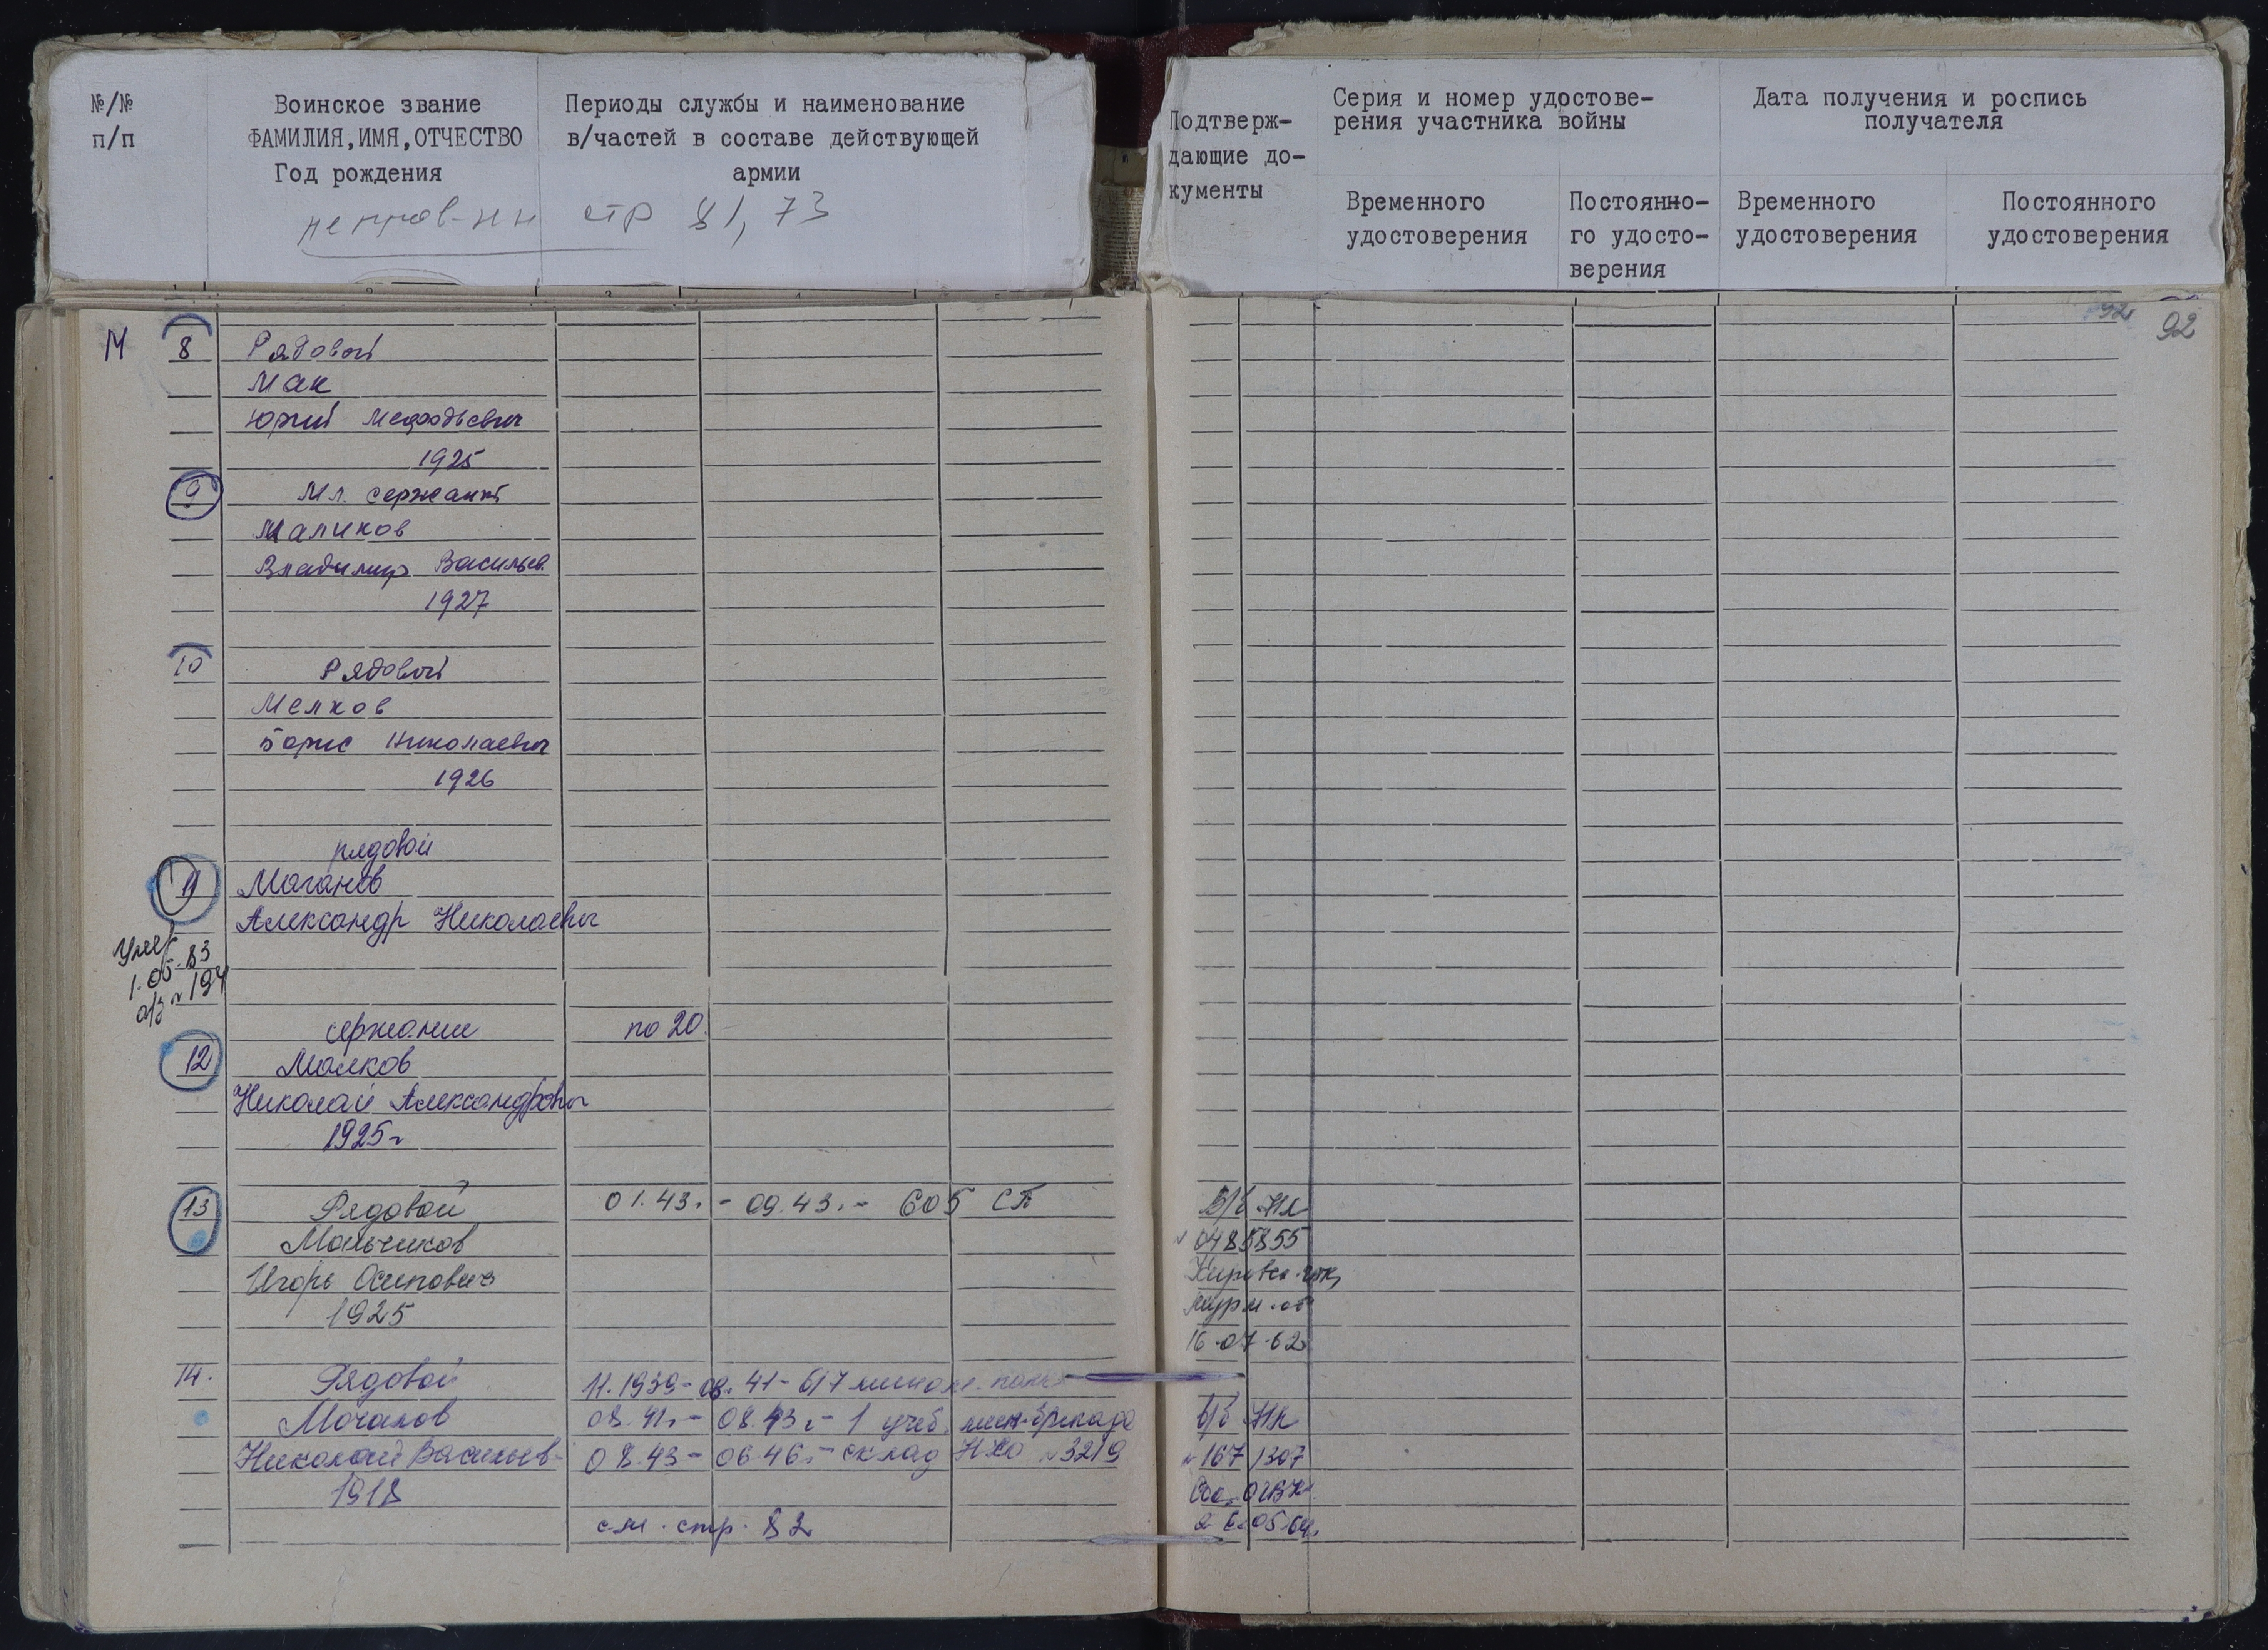 №/№
п/п
Воинское звание
ФАМИЛИЯ, ИМЯ, ОТЧЕСТВО
Год рождения
Периоды службы и наименование
в/частей в составе действующей
армии
стр 81, 73
Подтверж-
дающие до-
кументы
Серия и номер удостове-
рения участника войны
Временного
удостоверения
Постоянно-
го удосто-
верения
Дата получения и роспись
получателя
Временного
удостоверения
Постоянного
удостоверения
92
92
М
8 Рядовой
Мак
Юрий Мефодьевич
1925
9 Мл. сержант
Маликов
Владимир Васильев.
1927
10 Рядовой
Мелков
Борис Николаевич
1926
рядовой
11 Маганов
Александр Николаевич
Умер
1.05.83
сержант по 20.
12 Малков
Николай Александрович
1925г
13 Рядовой 01.43. - 09.43. - 605 СП
Мальчиков
Игорь Осипович
1925
В/б НК
0485855
16.07.62
14. Рядовой 11.1939 - 08.41 - 617 мином. полк
Мочалов 08.41. - 08.43. - 1 учеб. мин. бригада
Николай Васильев- 08.43 - 06.46. - склад НКО №3219
1918
см. стр. 82
в/б НК
№ 167/307